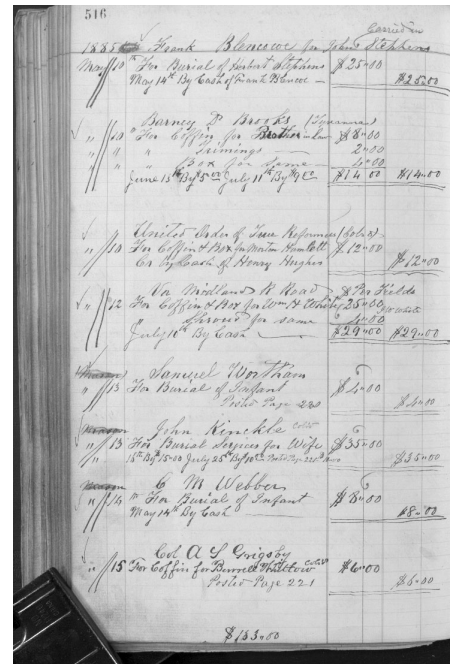 516
Carried on
1885 Frank Blencowe for John Stephens
May 10th For Burial of Herbert Stephens $25.00
May 14th By Cash of Frank Blencoe $25.00
Barney D Brooks
" 10 " For Coffin for Brother in law $8.00
" " " Trimings 2.00
" " Box for same 4.00
June 13th By 5.00 July 11th By $9.00 $14.00 $14.00
United Order of True Reformers (Cold)
" 10 For Coffin & Box for Hamlett $12.00
Cr By Cash of Henry Hughes $12.00
Va Midland R Road $ Per Fields
" 12 For Coffin & Box for Wm H White 25.00
" Shroud for same 4.00
July 16th By Cash $29.00 $29.00
Samuel Wortham
" 13 For Burial of Infant $4.00
Posted Page 220 $4.00
John Kinckle Cold
" 13 For Burial Services for Wife $35.00
" 18th By 15.00 July 25th By $35.00
C M Webber
" 14 th For Burial of Infant $8.00
May 14th By Cash $8.00
Col A S Grigsby
" 15 For Coffin for Burnell Cold $6.00
Posted Page 221 $6.00
$133.00